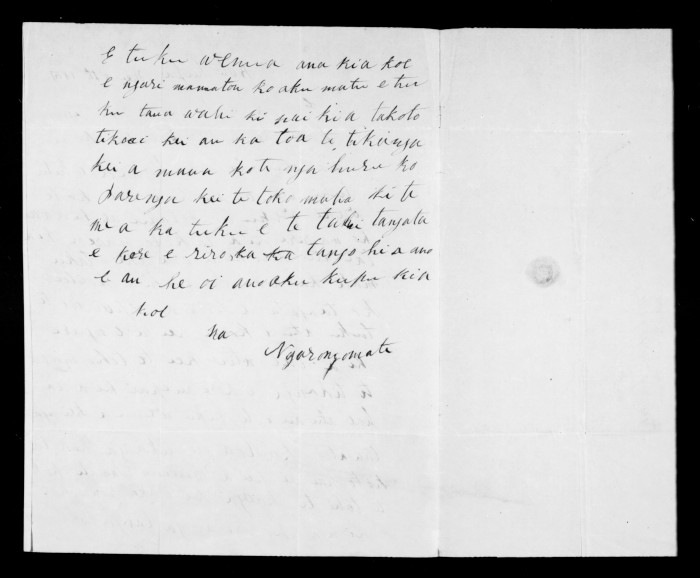 E tuku wenua ana kia koe
e ngari mamatou ko aku matu e tu
ku tana wahi ki pai kia takoto
tikaxi kei au ka toa te tikanga
kei a maua ko te nga huru ko
parenga kei te toko maha ki te
me a ka tuku e te tahi tangata
e kore e riro, ka ka tango hia ano
e au he oi ano aku kupu kia
koe
na
Ngarongomate